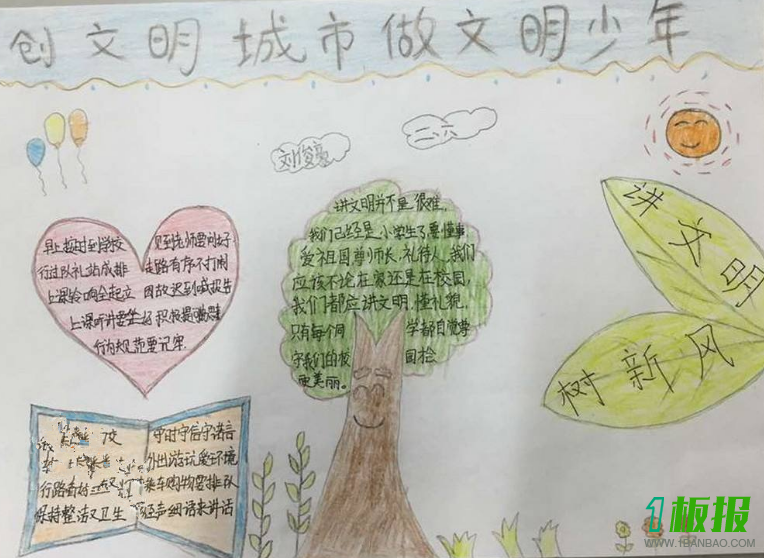 创文明城市做文明少年
刘俊豪
二、六
早上按时到学校 见到老师要问好
行过队礼站成排 走路有序不打闹
上课铃响全起立 因故迟到喊报告
上课听讲要坐好 积极提
行为规范要记牢
讲文明并不是很难,
我们已经是小学生了要懂事
爱祖国尊师长,礼待人,我们
应该不论在家还是在校园,
我们都应讲文明,懂礼貌
只有每个同学都自觉
守我们的校园
更美丽。
讲文明
树新风
守时守信守诺言
外出游玩爱环境
行路 乘车购物要排队
保持整洁又卫生 轻声细语来讲话
1板报
WWW.1BANBAO.COM